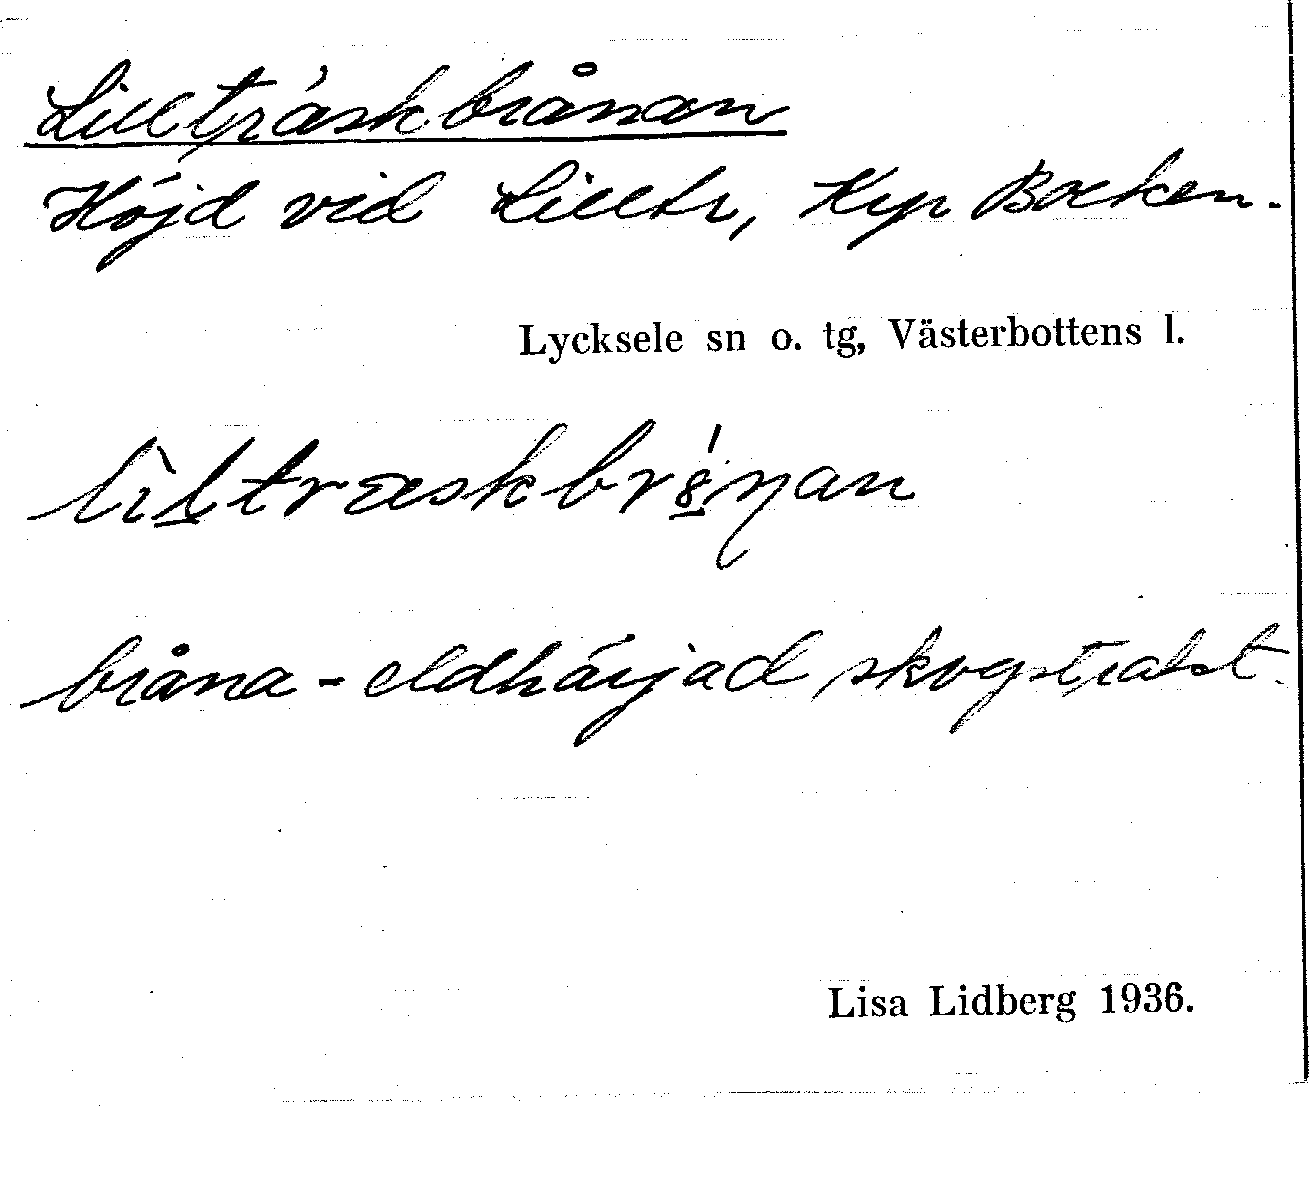 Lillträskbrånan
Höjd vid Lilltr, Kyr Brken.
Lycksele sn o. tg, Västerbottens l.
liltræskbrånan
bråna - eldhärjad skogstrakt.
Lisa Lidberg 1936.